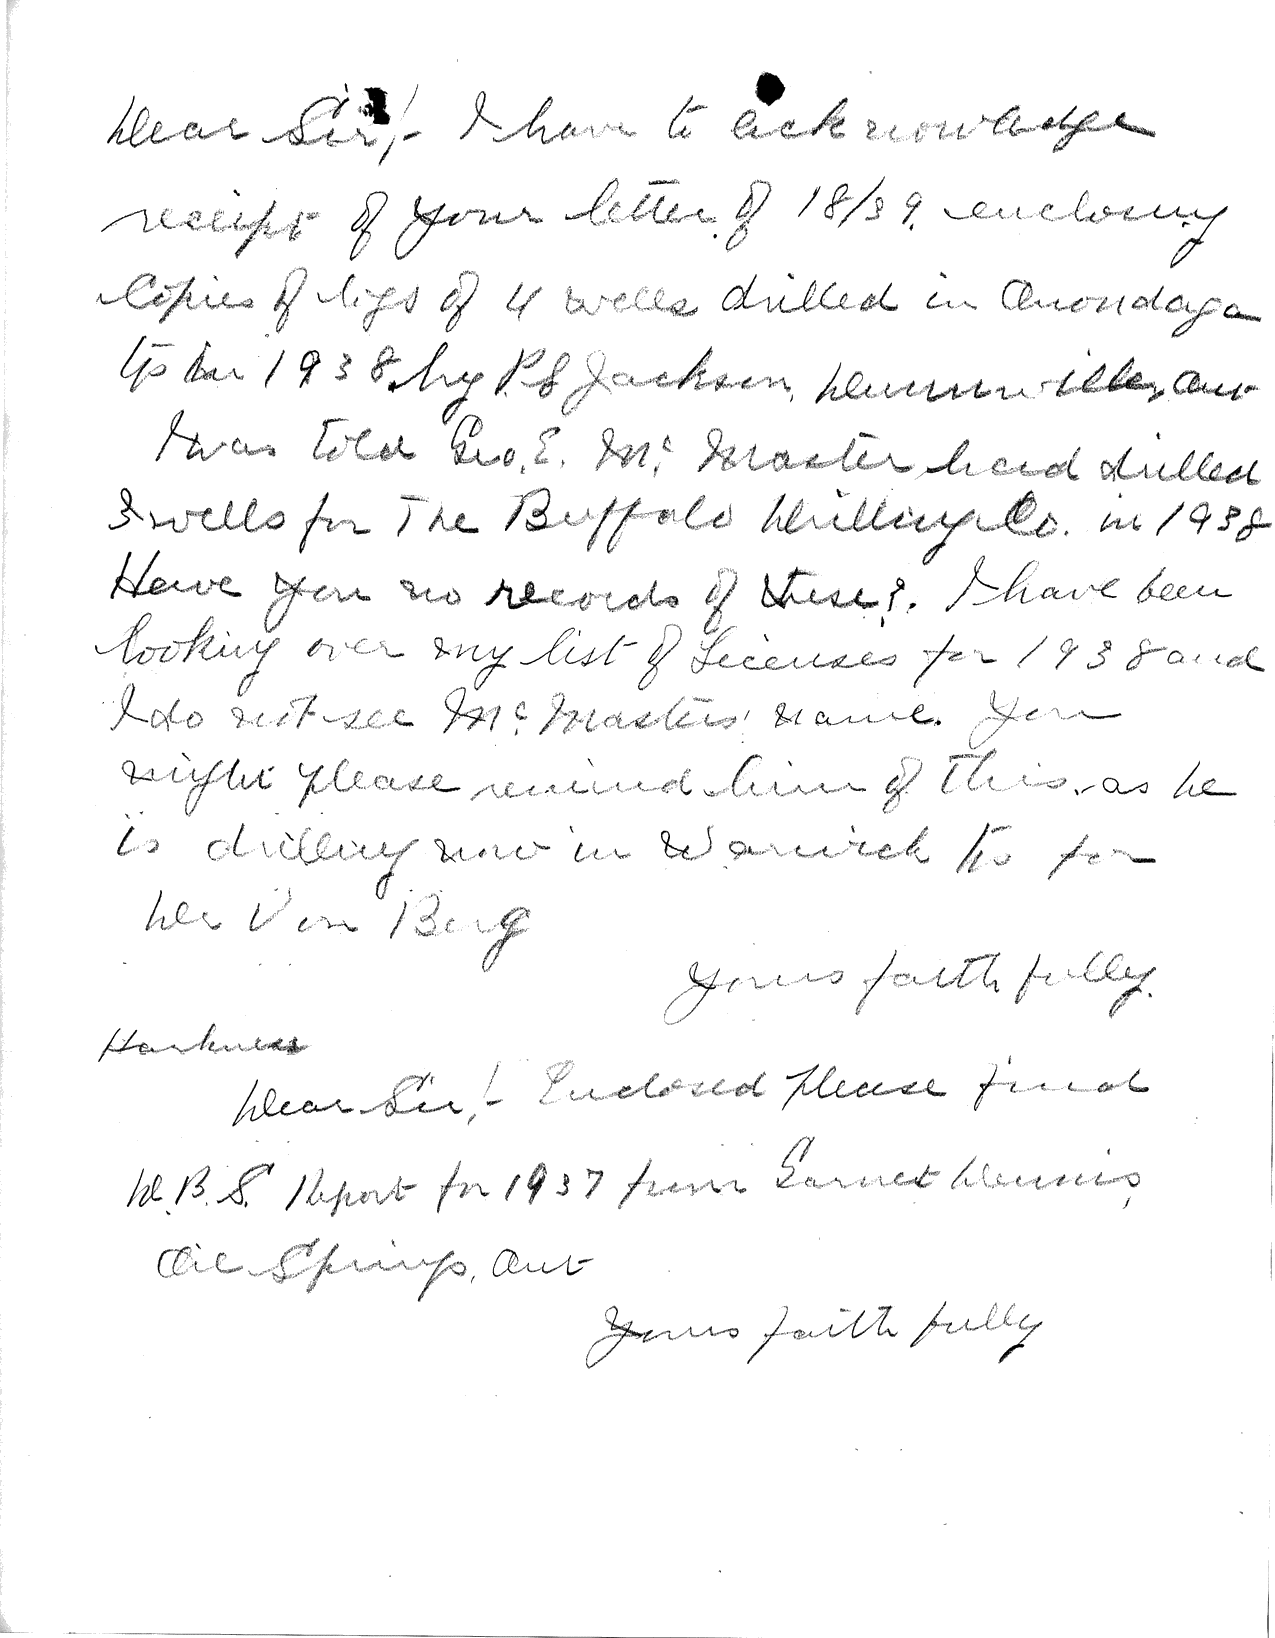 Dear Sir,!- I have to acknowledge
receipt of your letter of 18/39, enclosing
Copies of logs of 4 wells drilled in Onondaga
Tp in 1938 by P.S Jackson, Dunnville, Ont
I was told Geo. E. Mc Master had drilled
3 wells for The Buffalo Drilling Co. in 1938
Have you no records of these?. I have been
looking over my list of Licenses for 1938 and
I do not see Mc Masters' name. You
might please remind him of this, as he
is drilling now in Warwick Tp for
Von Berg
Yours faithfully.
Harkness
Dear Sir,!- Enclosed please find
D.B.S. Report for 1937 from Garnet Dennis,
Oil Springs, Ont
Yours faithfully